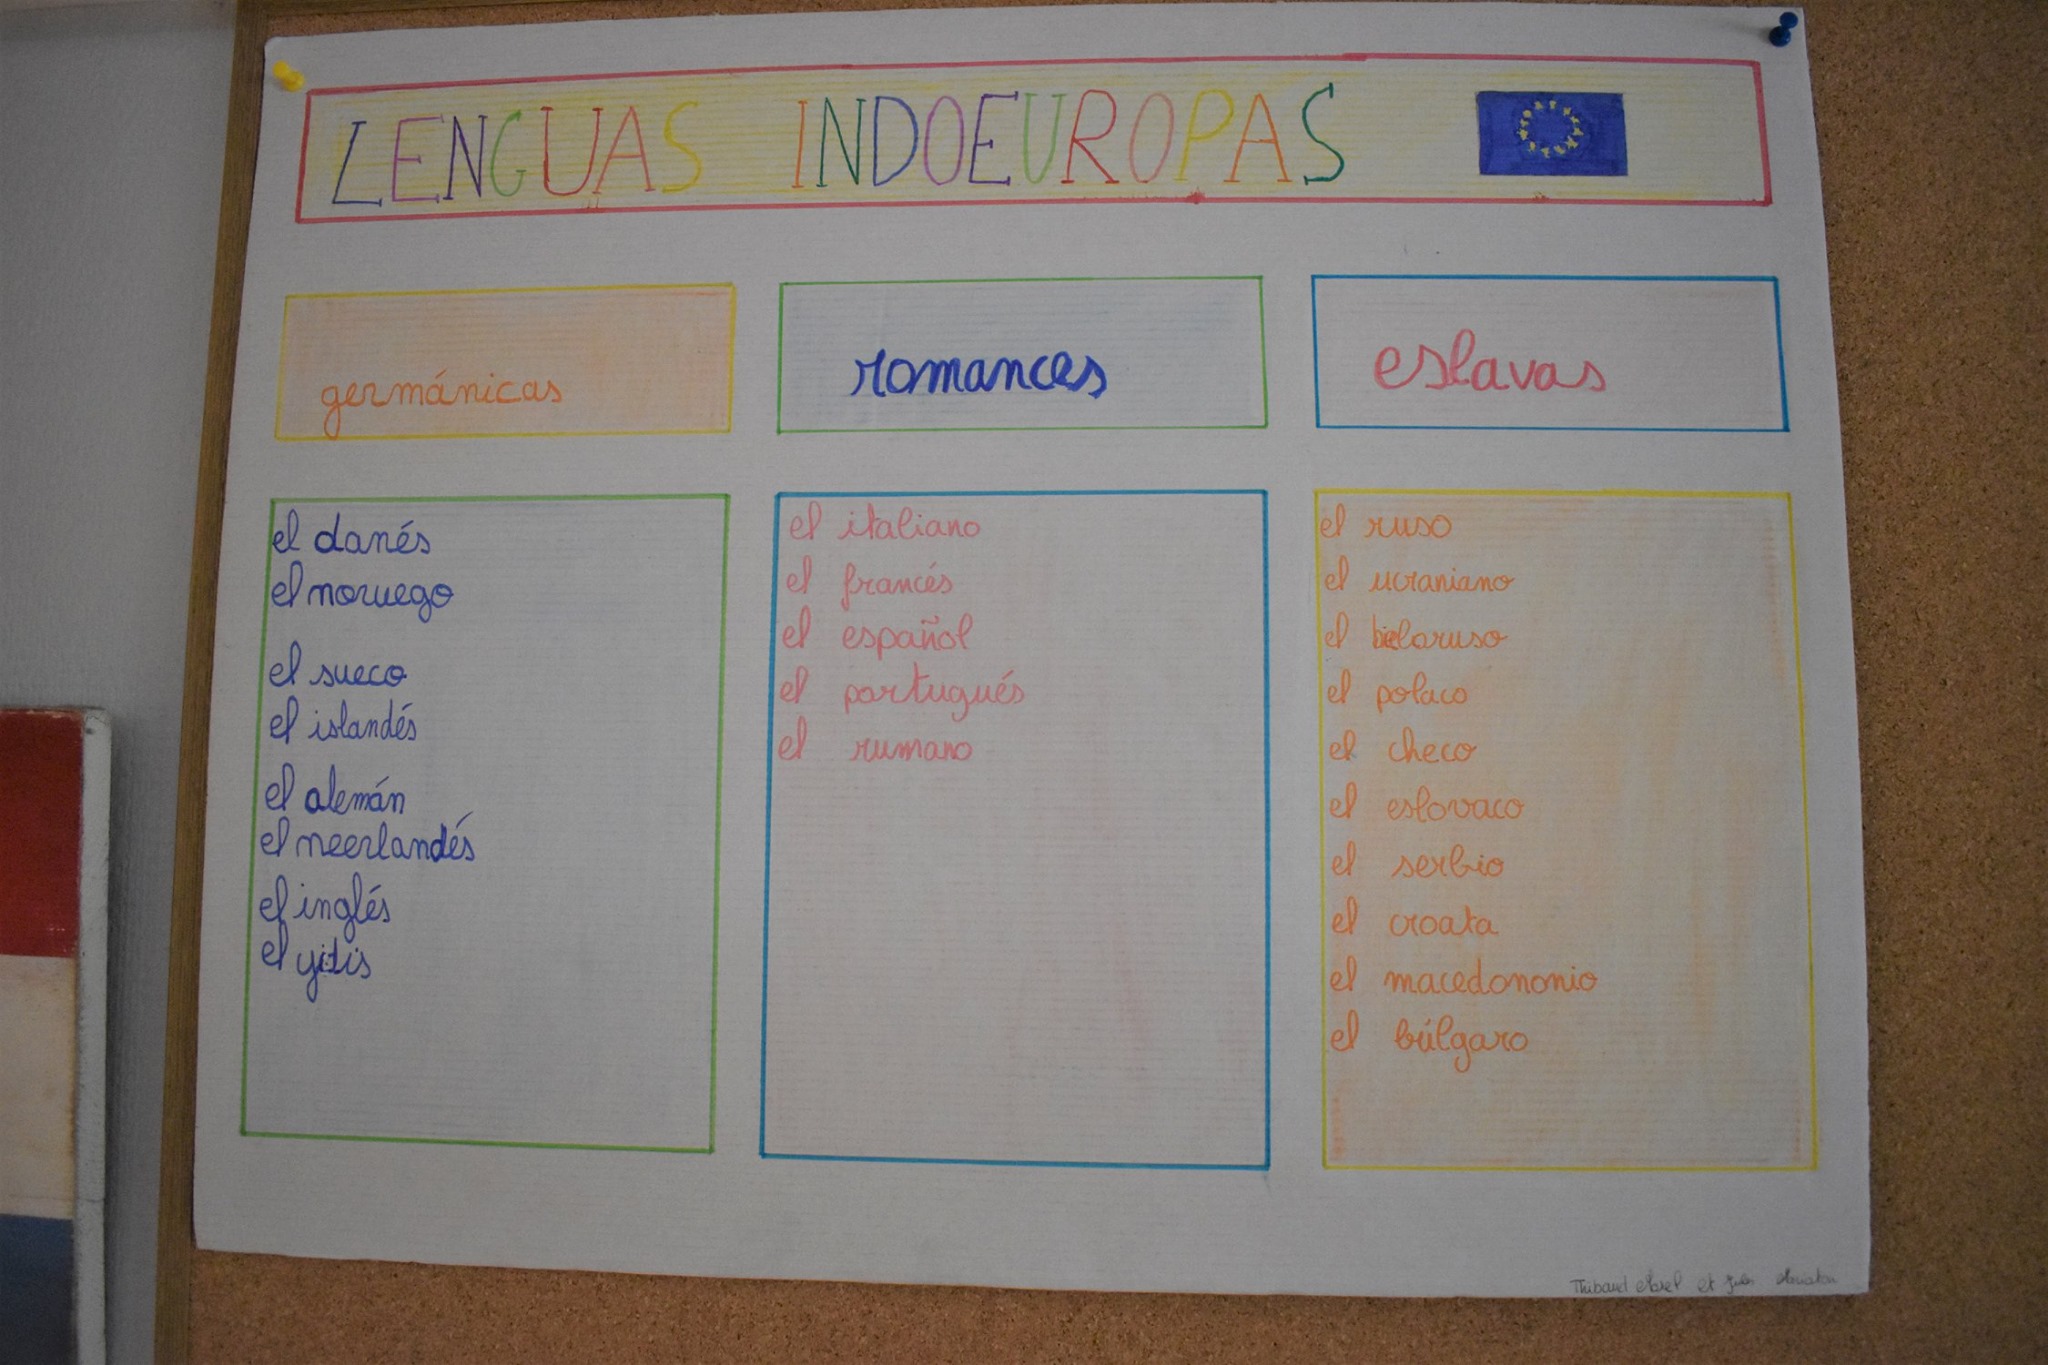 LENGUAS INDOEUROPAS
germánicas
romances
eslavas
el danés
el noruego
el sueco
el islandés
el alemán
el neerlandés
el inglés
el yidis
el italiano
el francés
el español
el portugués
el rumano
el ruso
el ucraniano
el bielaruso
el polaco
el checo
el eslovaco
el serbio
el croata
el macedononio
el búlgaro
Thibaud et Jules